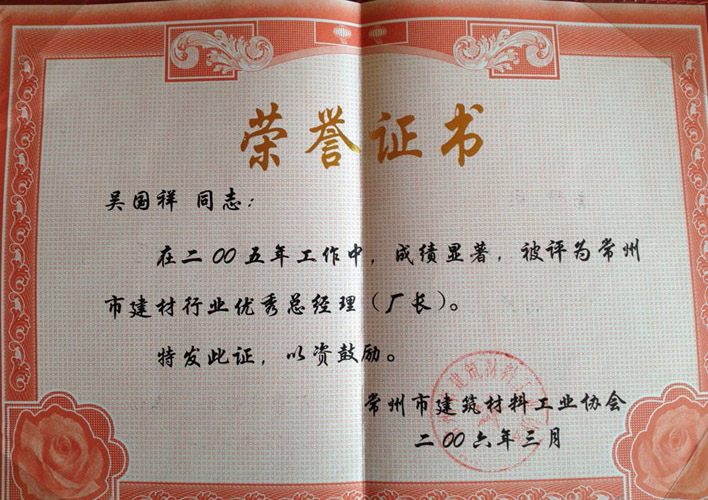 荣誉证书
吴国祥 同志：
在二00五年工作中，成绩显著，被评为常州
市建材行业优秀总经理（厂长）。
特发此证，以资鼓励。
常州市建筑材料工业协会
二00六年三月